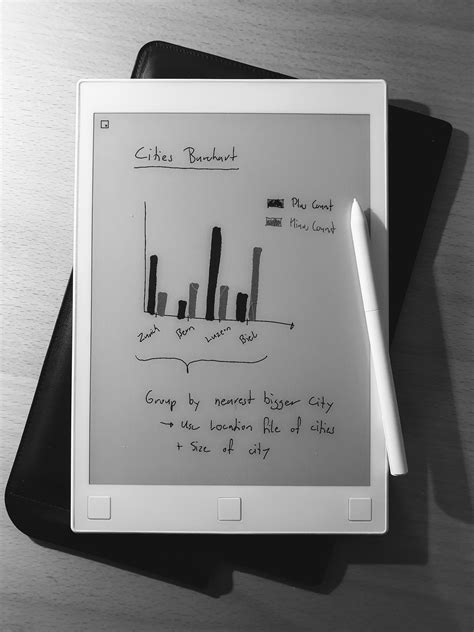 Cities Barchart
Plus Count
Minus Count
Zurich
Bern
Luzern
Biel
Group by nearest bigger City
→ Use Location file of cities
+ Size of city